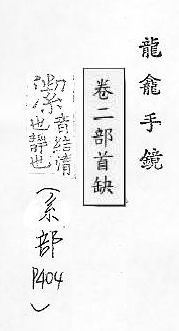 龍龕手鏡
卷二部首缺
音結清
也靜也
（系部
P404）